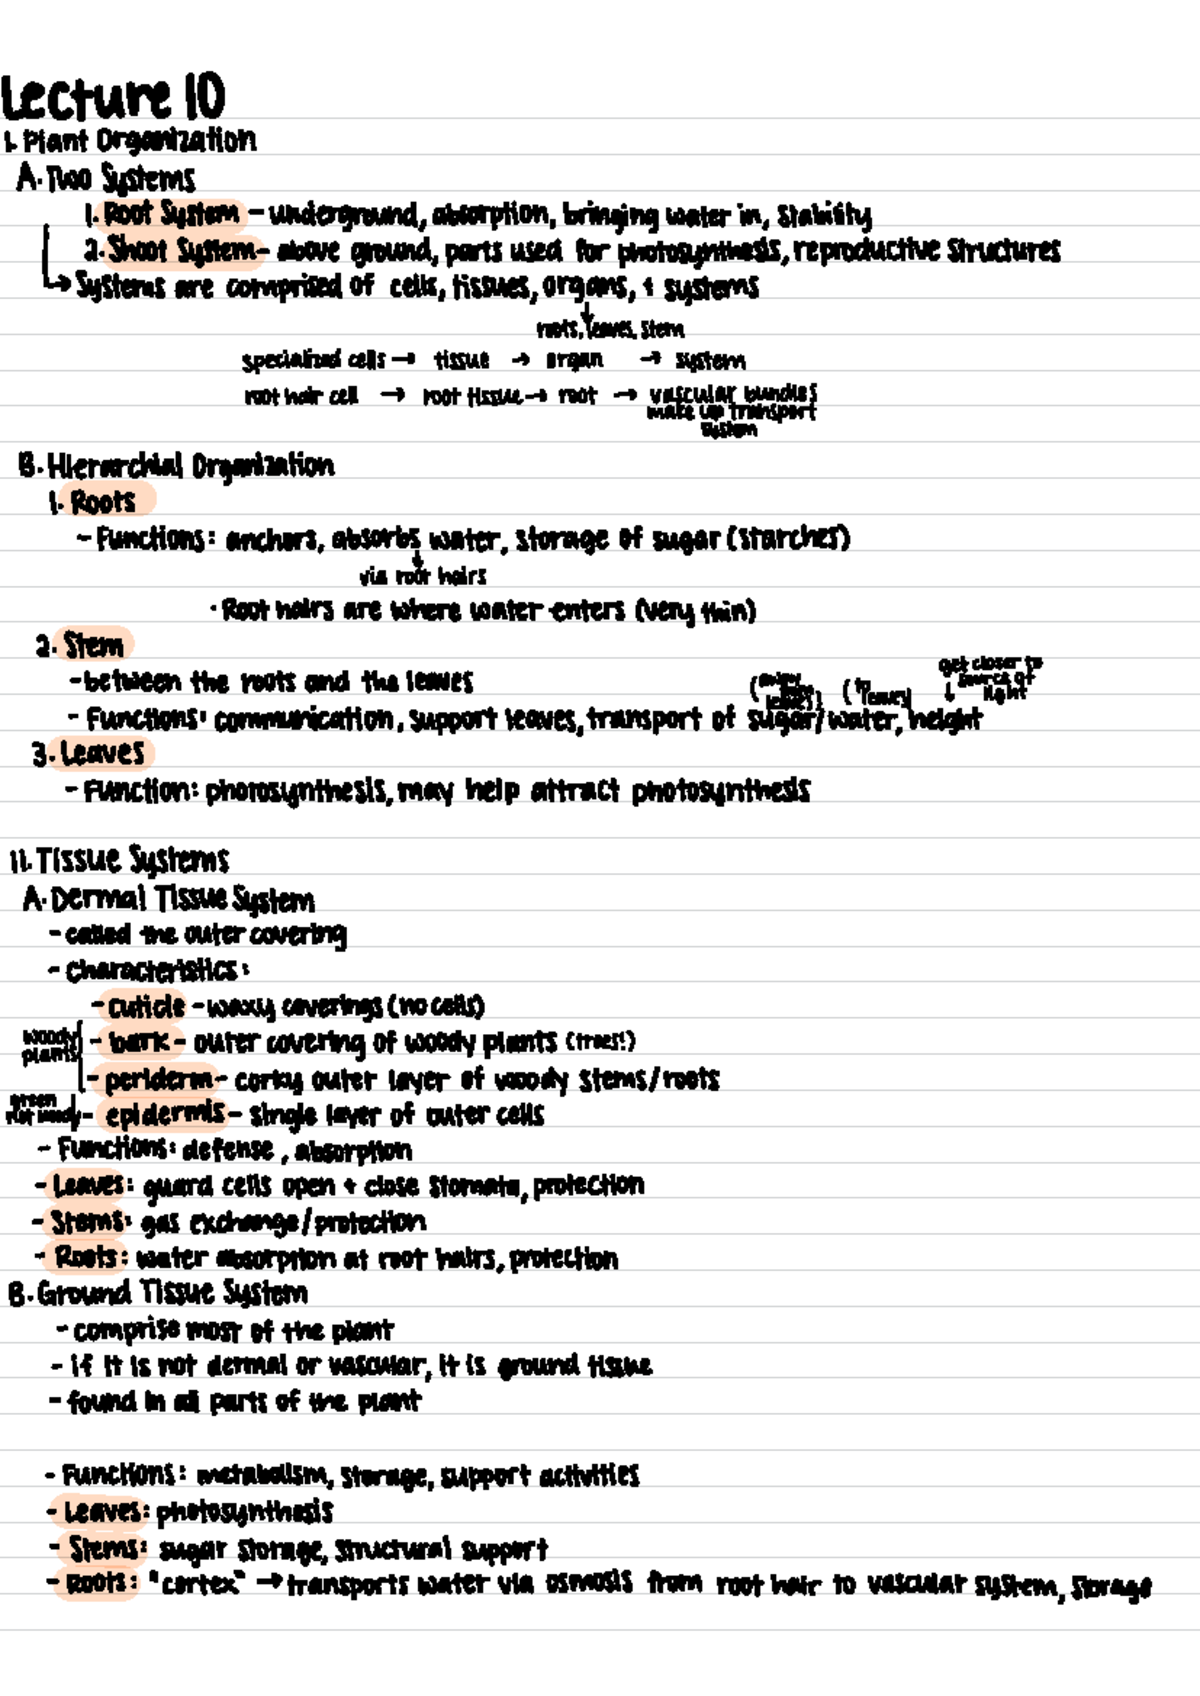 Lecture 10
I. Plant Organization
A. Two Systems
1. Root System - underground, absorption, bringing water in, stability
2. Shoot System - above ground, parts used for photosynthesis, reproductive structures
↳ Systems are comprised of cells, tissues, organs, + systems
↓
roots, leaves, stem
specialized cells → tissue → organ → system
root hair cell → root tissue → root → vascular bundles
make up transport
system
B. Hierarchial Organization
1. Roots
- Functions: anchors, absorbs water, storage of sugar (starches)
↓
via root hairs
· Root hairs are where water enters (very thin)
2. Stem
- between the roots and the leaves
(away from leaves) (to leaves) get closer to source of light ↓
- Functions: communication, support leaves, transport of sugar/water, height
3. Leaves
- Function: photosynthesis, may help attract photosynthesis
II. Tissue Systems
A. Dermal Tissue System
- called the outer covering
- characteristics:
- cuticle - waxy coverings (no cells)
woody plants
- bark - outer covering of woody plants (trees!)
- periderm - corky outer layer of woody stems/roots
green not woody
- epidermis - single layer of outer cells
- Functions: defense, absorption
- Leaves: guard cells open + close stomata, protection
- Stems: gas exchange/protection
- Roots: water absorption at root hairs, protection
B. Ground Tissue System
- comprise most of the plant
- if it is not dermal or vascular, it is ground tissue
- found in all parts of the plant
- Functions: metabolism, storage, support activities
- Leaves: photosynthesis
- Stems: sugar storage, structural support
- Roots: "cortex" → transports water via osmosis from root hair to vascular system, storage